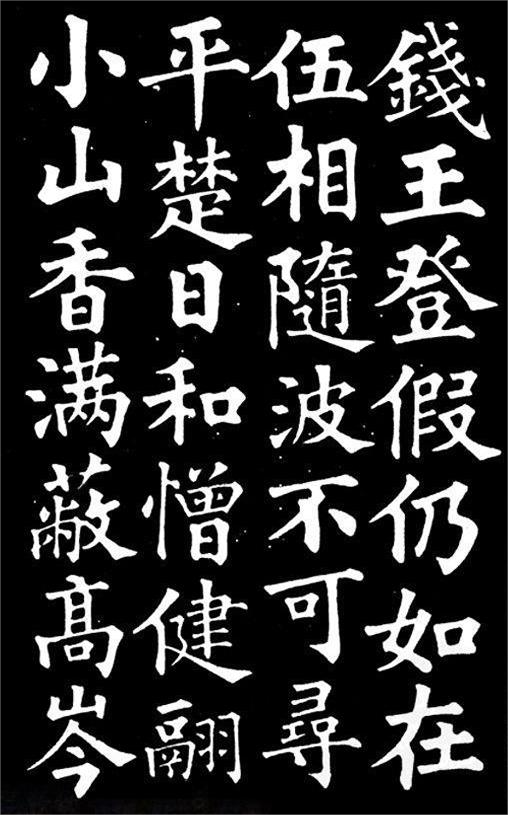 錢王登假仍如在
伍相隨波不可尋
平楚日和憎健翮
小山香满蔽高岑